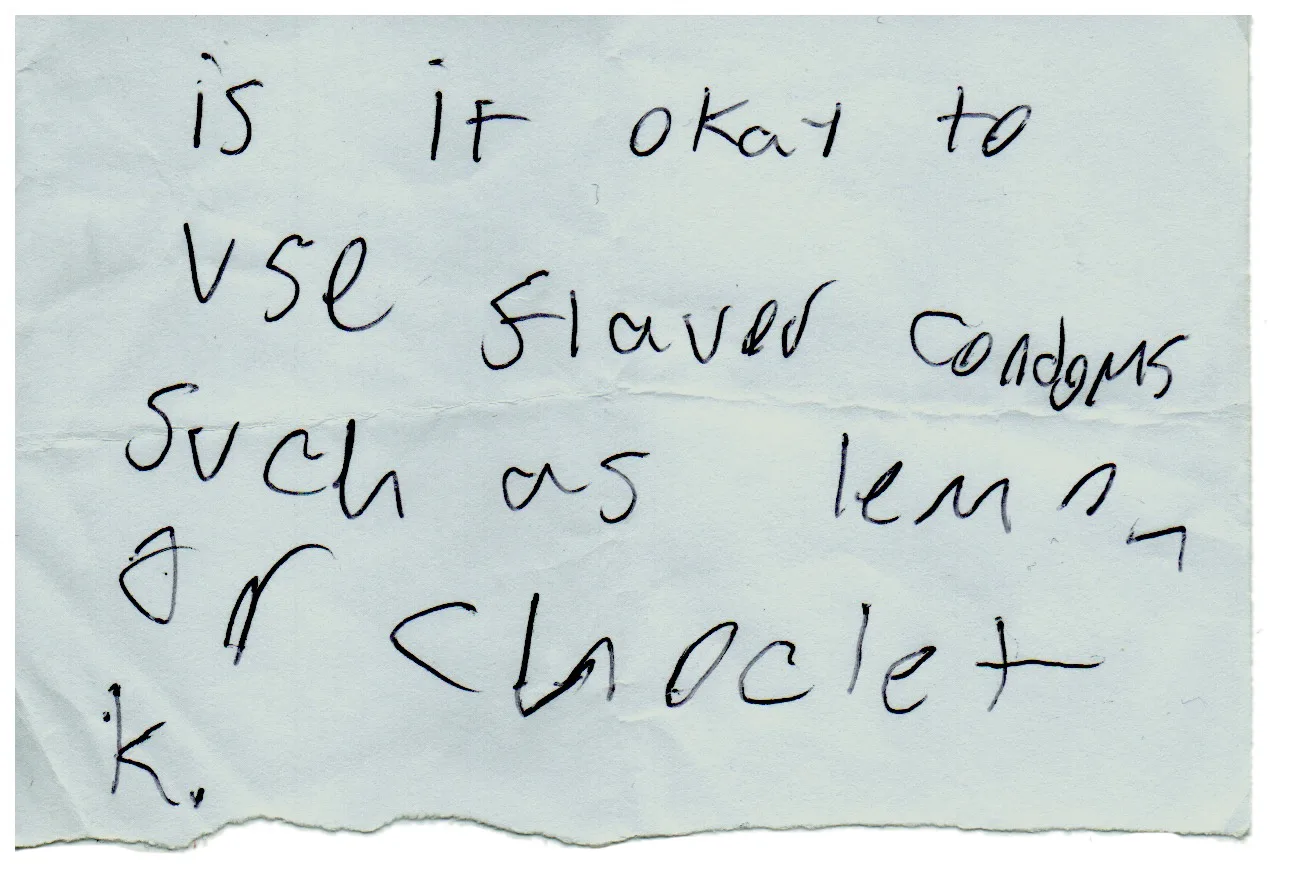 is it okay to
use flaver condoms
such as lemon
or choclet
k.